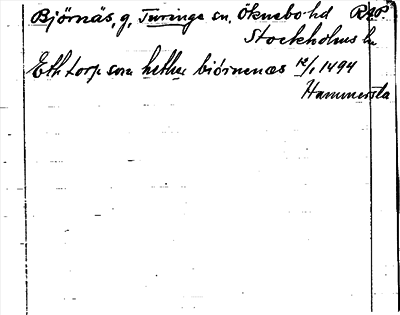 Björnäs, g, Turinge sn, Öknebo hd RAP.
Stockholms län
Eth torp som hether biörnenæs 12/1 1494
Hammersta